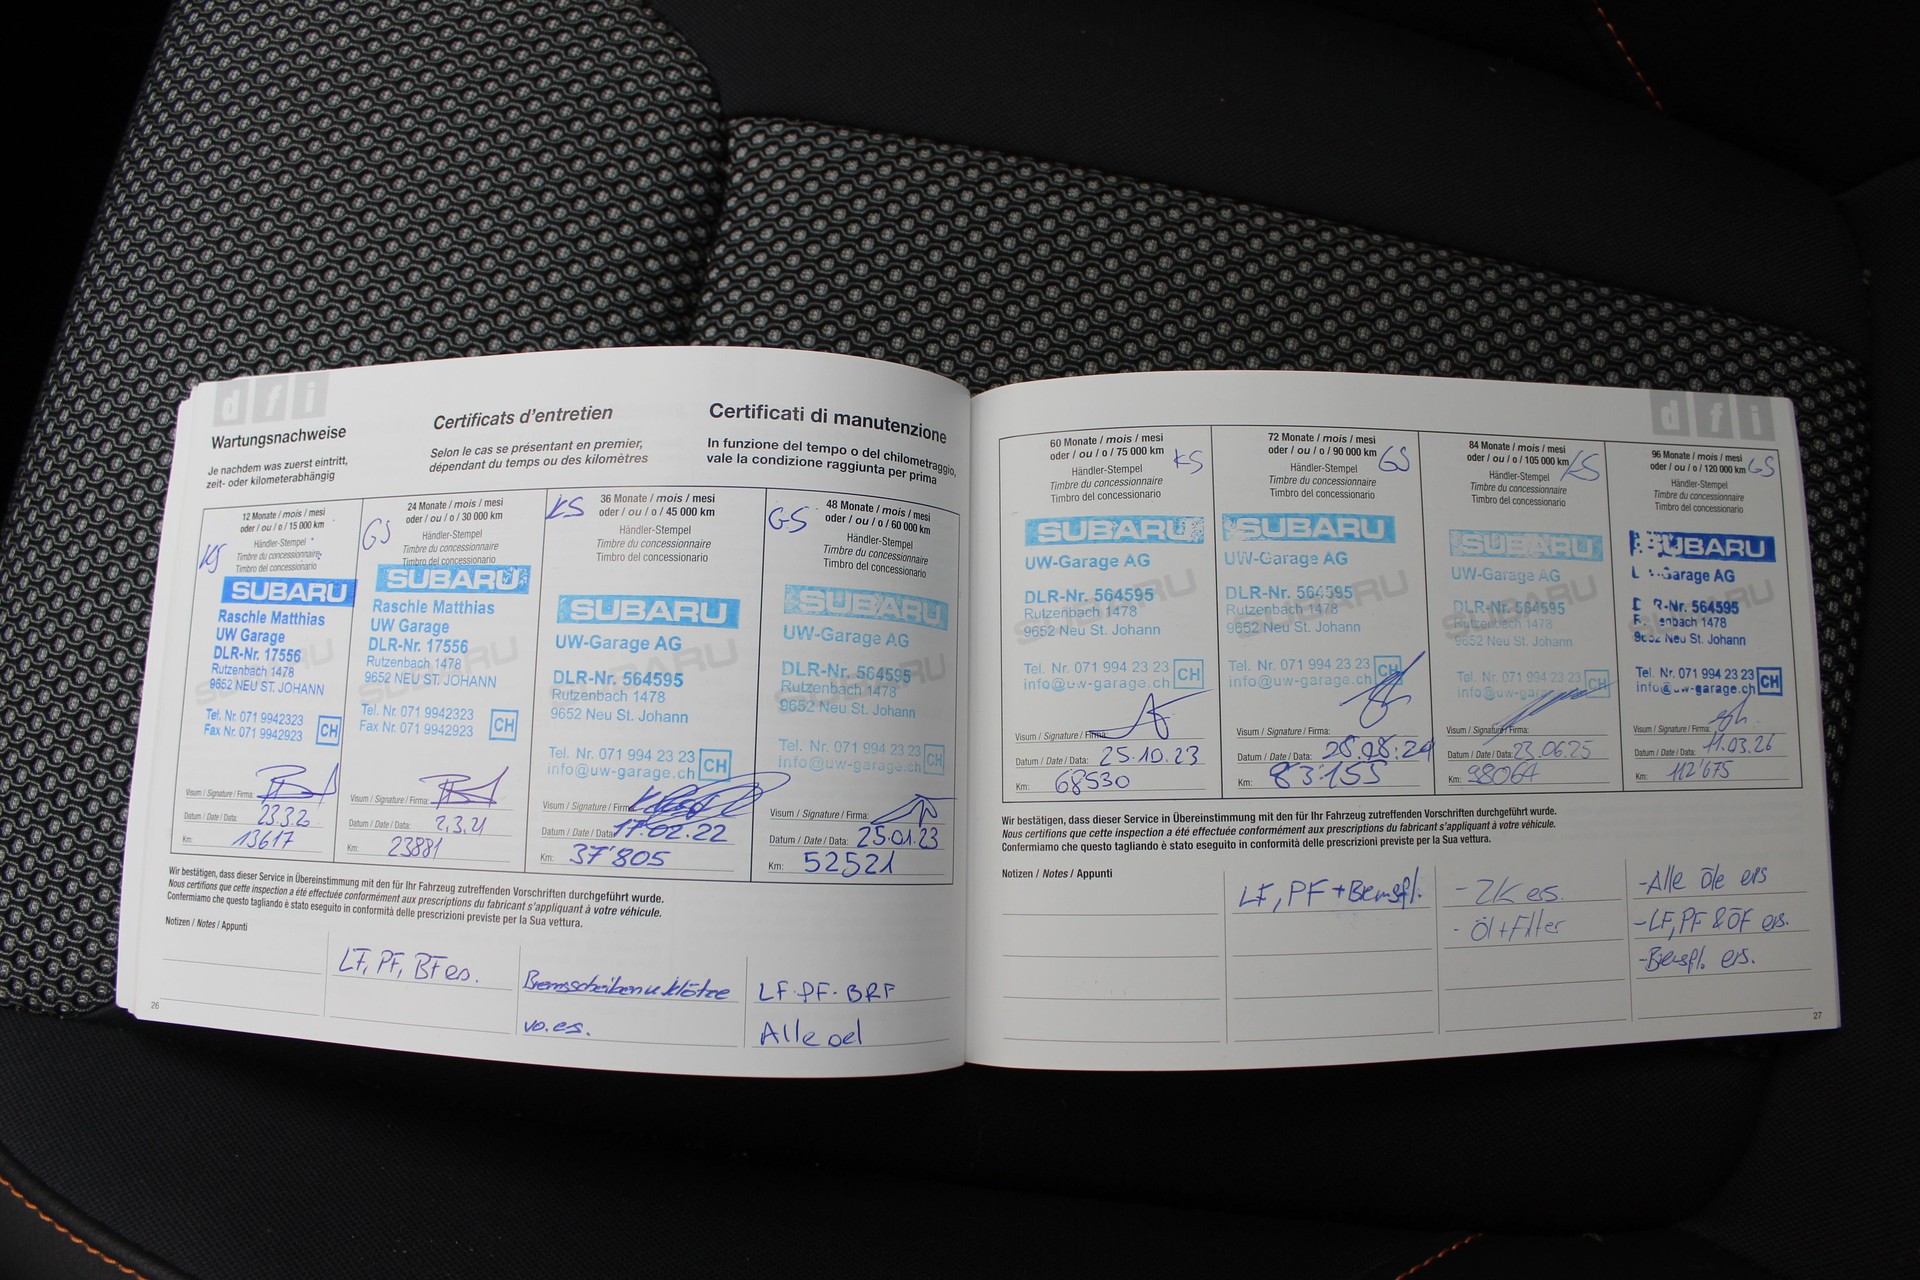 d f i
Wartungsnachweise
Je nachdem was zuerst eintritt,
zeit- oder kilometerabhängig
Certificats d'entretien
Selon le cas se présentant en premier,
dépendant du temps ou des kilomètres
Certificati di manutenzione
In funzione del tempo o del chilometraggio,
vale la condizione raggiunta per prima
12 Monate / mois / mesi
oder / ou / o / 15 000 km
Händler-Stempel
Timbre du concessionnaire
Timbro del concessionario
KS
SUBARU
Raschle Matthias
UW Garage
DLR-Nr. 17556
Rutzenbach 1478
9652 NEU ST. JOHANN
Tel. Nr. 071 9942323
Fax Nr. 071 9942923
CH
Visum / Signature / Firma:
Datum / Date / Data: 23.3.20
Km: 13617
24 Monate / mois / mesi
oder / ou / o / 30 000 km
GS
Händler-Stempel
Timbre du concessionnaire
Timbro del concessionario
SUBARU
Raschle Matthias
UW Garage
DLR-Nr. 17556
Rutzenbach 1478
9652 NEU ST. JOHANN
Tel. Nr. 071 9942323
Fax Nr. 071 9942923
CH
Visum / Signature / Firma:
Datum / Date / Data: 2.3.21
Km: 23881
KS
36 Monate / mois / mesi
oder / ou / o / 45 000 km
Händler-Stempel
Timbre du concessionnaire
Timbro del concessionario
SUBARU
UW-Garage AG
DLR-Nr. 564595
Rutzenbach 1478
9652 Neu St. Johann
Tel. Nr. 071 994 23 23
info@uw-garage.ch
CH
Visum / Signature / Firma:
Datum / Date / Data: 17.02.22
Km: 37'805
GS
48 Monate / mois / mesi
oder / ou / o / 60 000 km
Händler-Stempel
Timbre du concessionnaire
Timbro del concessionario
SUBARU
UW-Garage AG
DLR-Nr. 564595
Rutzenbach 1478
9652 Neu St. Johann
Tel. Nr. 071 994 23 23
info@uw-garage.ch
CH
Visum / Signature / Firma:
Datum / Date / Data: 25.01.23
Km: 52521
Wir bestätigen, dass dieser Service in Übereinstimmung mit den für Ihr Fahrzeug zutreffenden Vorschriften durchgeführt wurde.
Nous certifions que cette inspection a été effectuée conformément aux prescriptions du fabricant s'appliquant à votre véhicule.
Confermiamo che questo tagliando è stato eseguito in conformità delle prescrizioni previste per la Sua vettura.
Notizen / Notes / Appunti
LF, PF, BF es.
Bremsscheiben u klötze
vo. es.
LF. PF. BRF
Alle oel
26
d f i
60 Monate / mois / mesi
oder / ou / o / 75 000 km
KS
Händler-Stempel
Timbre du concessionnaire
Timbro del concessionario
SUBARU
UW-Garage AG
DLR-Nr. 564595
Rutzenbach 1478
9652 Neu St. Johann
Tel. Nr. 071 994 23 23
info@uw-garage.ch
CH
Visum / Signature / Firma:
Datum / Date / Data: 25.10.23
Km: 68530
72 Monate / mois / mesi
oder / ou / o / 90 000 km
GS
Händler-Stempel
Timbre du concessionnaire
Timbro del concessionario
SUBARU
UW-Garage AG
DLR-Nr. 564595
Rutzenbach 1478
9652 Neu St. Johann
Tel. Nr. 071 994 23 23
info@uw-garage.ch
CH
Visum / Signature / Firma:
Datum / Date / Data:
Km: 83'155
84 Monate / mois / mesi
oder / ou / o / 105 000 km
KS
Händler-Stempel
Timbre du concessionnaire
Timbro del concessionario
SUBARU
UW-Garage AG
DLR-Nr. 564595
Rutzenbach 1478
9652 Neu St. Johann
Tel. Nr. 071 994 23 23
CH
Visum / Signature / Firma:
Datum / Date / Data: 23.06.25
Km: 98064
96 Monate / mois / mesi
oder / ou / o / 120 000 km
GS
Händler-Stempel
Timbre du concessionnaire
Timbro del concessionario
SUBARU
Garage AG
R-Nr. 564595
enbach 1478
Neu St. Johann
Tel. Nr. 071 994 23 23
info@uw-garage.ch
CH
Visum / Signature / Firma:
Datum / Date / Data: 11.03.26
Km: 112'675
Wir bestätigen, dass dieser Service in Übereinstimmung mit den für Ihr Fahrzeug zutreffenden Vorschriften durchgeführt wurde.
Nous certifions que cette inspection a été effectuée conformément aux prescriptions du fabricant s'appliquant à votre véhicule.
Confermiamo che questo tagliando è stato eseguito in conformità delle prescrizioni previste per la Sua vettura.
Notizen / Notes / Appunti
LF, PF + Bremsfl.
- ZK ers.
- Öl + Filter
- Alle Öle ers
- LF, PF & ÖF ers.
- Bremsfl. ers.
27